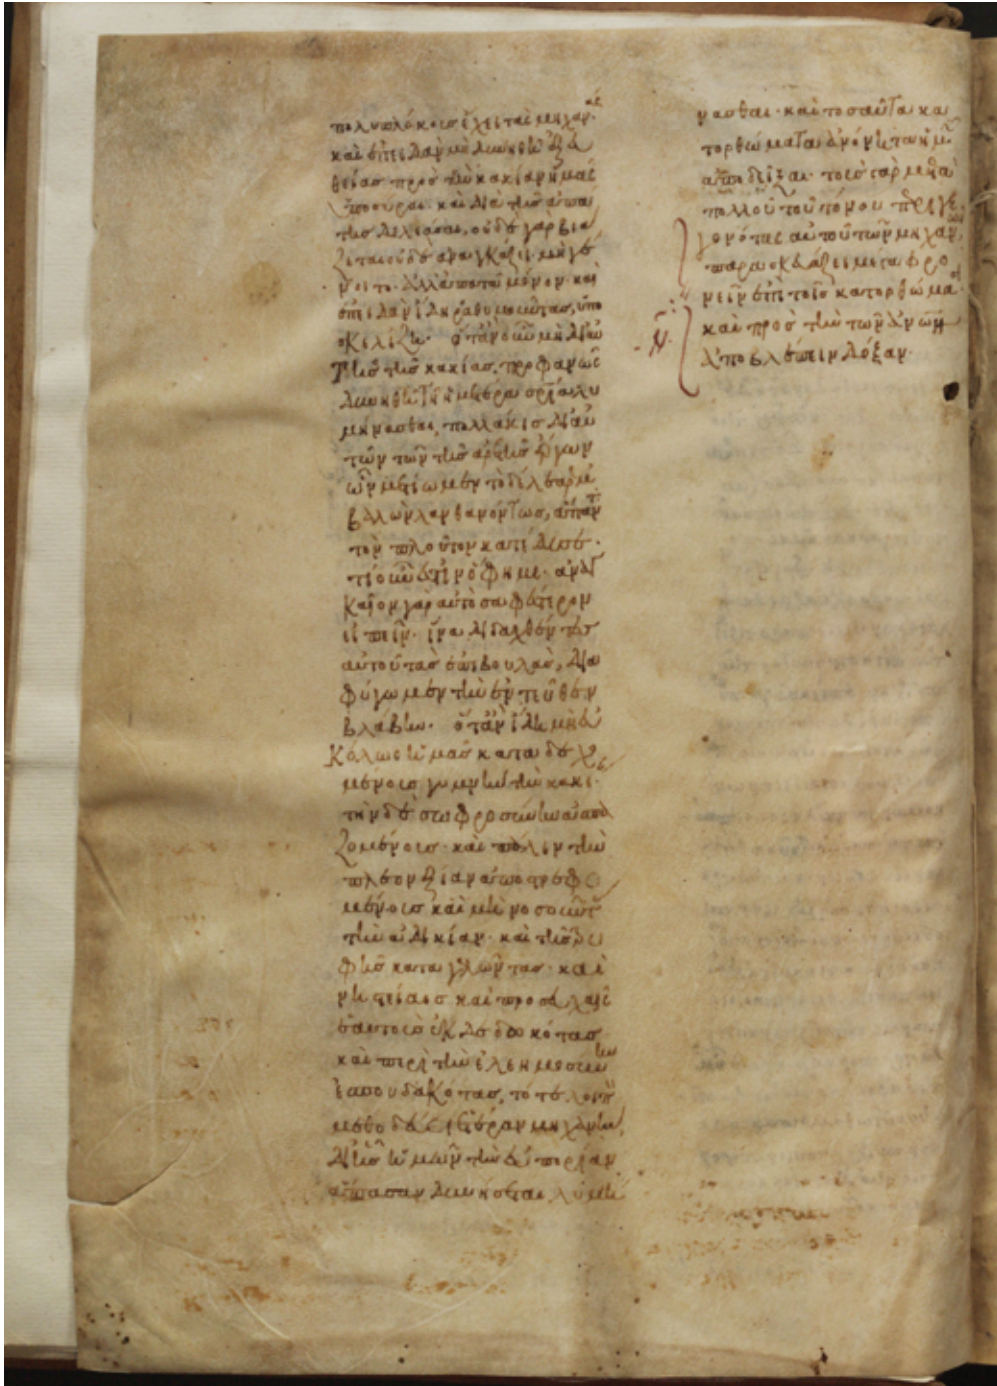 πολυπλόκοισ ἔχει ταὶσ μηχαναῖς
καὶ ἐπειδὰν μὴ δυνηθῆ ἐξ εὐ
θείασ πρὸσ τὴν κακίαν ἡμᾶς
ὑποσύραι· καὶ διὰ τῆσ ἀπα
τησ δελεάσαι, οὐδὲ γὰρ βιά
ζεται οὐδὲ ἀναγκάζει· μὴ γέ
νοιτο· ἀλλ' ἀπατᾶ μόνον· καὶ
ἐπειδὰν ἴδη ῥαθυμοῦντασ, ὑπο
σκελίζει· ὅταν οὖν μὴ διὰ
τῆσ κακίασ, προφανῶς
δυνηθῆ τῆ ἡμετέρα σρία λυ
μήνασθαι, πολλάκισ δι' αὐ
τῶν τῶν τῆσ ἀρετῆσ ἔργων
ὧν μετίωμεν τὸ δέλεαρ ἐμ
βαλὼν λανθανόντωσ, ἅπαντα
τὸν πλοῦτον κατέδυσε·
τί οὖν ἐστιν ὅ φημι· ἀναγ
καῖον γὰρ αὐτὸ σαφέστερον
εἰπεῖν· ἵνα διδαχθέντεσ
αὐτοῦ τὰσ ἐπιβουλὰσ, δια
φύγωμεν τὴν ἐντεῦθεν
βλάβην· ὅταν ἴδη μὴ εὐ
κόλωσ ἡμᾶσ καταδεχο
μένουσ γυμνὴν τὴν κακίαν·
τὴν δὲ σωφροσύνην ἀσπα
ζομένουσ· καὶ πάλιν τὴν
πλεονεξίαν ἀποστρεφο
μένουσ καὶ μισοῦντας
τὴν ἀδικίαν· καὶ τῆσ τρυ
φῆσ καταγελῶντασ· καὶ
νηστείαισ καὶ προσευχαῖς
ἑαυτοὺσ ἐκδεδωκότασ
καὶ περὶ τὴν ἐλεημοσύνην
ἐσπουδακότασ, τότε λοιπὸν
μεθοδεύει ἑτέραν μηχανὴν,
δι' ἧσ ἡμῶν τὴν εὐπορίαν
ἅπασαν δυνήσεται λυμή
νασθαι· καὶ τοσαῦτα κα
τορθώματα ἀνόνητα ἡμῖν
ἀποδεῖξαι· τοὺσ γὰρ μετὰ
πολλοῦ τοῦ πόνου περιγε
γονότασ αὐτοῦ τῶν μηχανῶν,
παρασκευάζει μέγα φρο
νεῖν ἐπὶ τοῖσ κατορθώμασι
καὶ πρὸσ τὴν τῶν ἀνων
ἀποβλέπειν δόξαν·